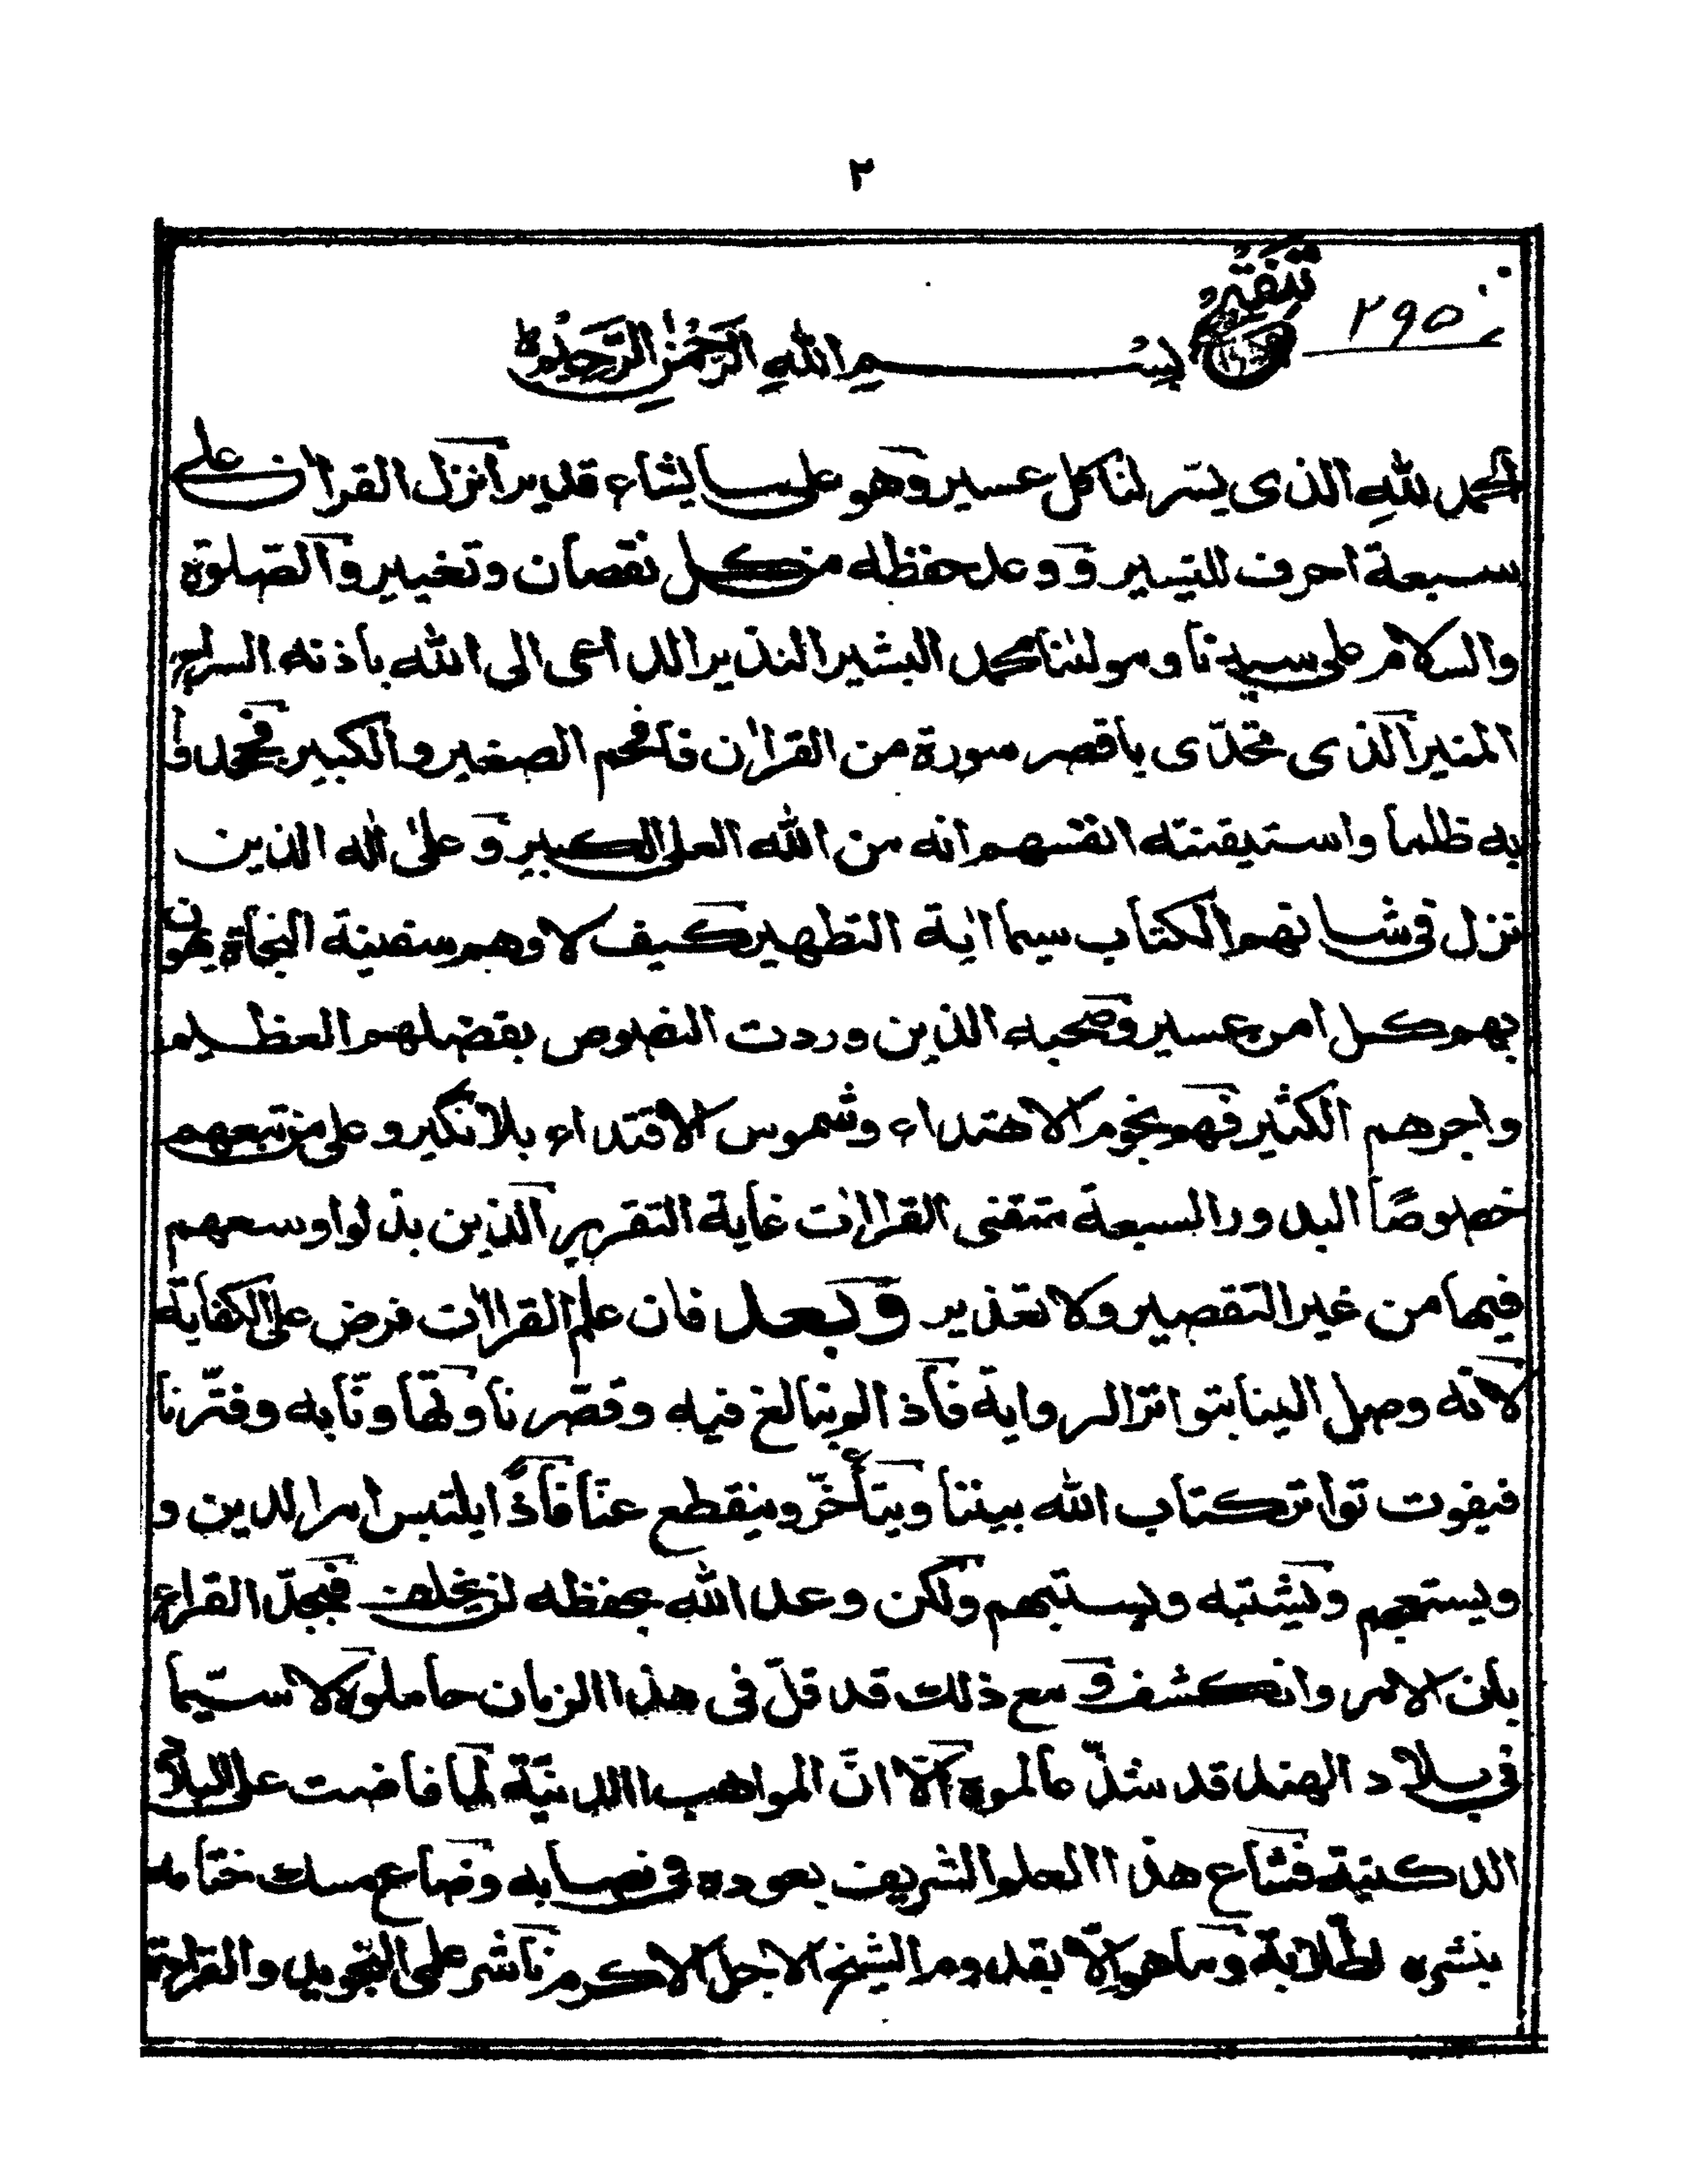 ٢
٢٩٥
بسم الله الرحمن الرحيم
الحمد لله الذى يسر لنا كل عسير وهو على ما يشاء قدير انزل القران على
سبعة احرف للتيسير و وعد حفظه من كل نقصان وتغيير والصّلوة
والسلام على سيدنا ومولٰنا محمد البشير النذير الداعى الى الله باذنه السراج
المنير الذى تحدّى باقصر سورة من القراٰن فافحم الصغير والكبير فجحدوا
به ظلما واستيقنته انفسهم انه من الله العلى الكبير و علىٰ اٰله الذين
نزل فى شانهم الكتاب سيما اٰية التطهير كيف لا وهم سفينة النجاة يهون
بهم كل امر عسير وصحبه الذين وردت النصوص بفضلهم العظيم
واجرهم الكثير فهم نجوم الاهتداء وشموس الاقتداء بلا نكير و على من تبعهم
خصوصًا البدور السبعة متقنى القراٰات غاية التقرير الذين بذلوا وسعهم
فيها من غير التقصير ولا تعذير وبعد فان علم القراات فرض على الكفاية
لانّه وصل الينا بتواتر الرواية فاذا لم نبالغ فيه وقصّرنا ولهّاونّا به وفتّرنا
فيفوت تواتر كتاب الله بيننا ويتأخّر وينقطع عنّا فاذًا يلتبس امر الدين و
ويستعجم ويشتبه ويستبهم ولكن وعد الله بحفظه لن يخلف فبجدّ القراء
بان الامر وانكشف و مع ذلك قد قلّ فى هذا الزمان حاملوه لا سيّما
فى بلاد الهند قد شذّ عالموه الّا انّ المواهب اللدنيّة لما فاضت على البلاد
الدكنية فشاع هذا العلم الشريف بعوده فى نصابه وضاع مسك ختامه
بنشره لطلابه وما هو الّا بقدوم الشيخ الاجل الاكرم ناشر على التجويد والقراءة